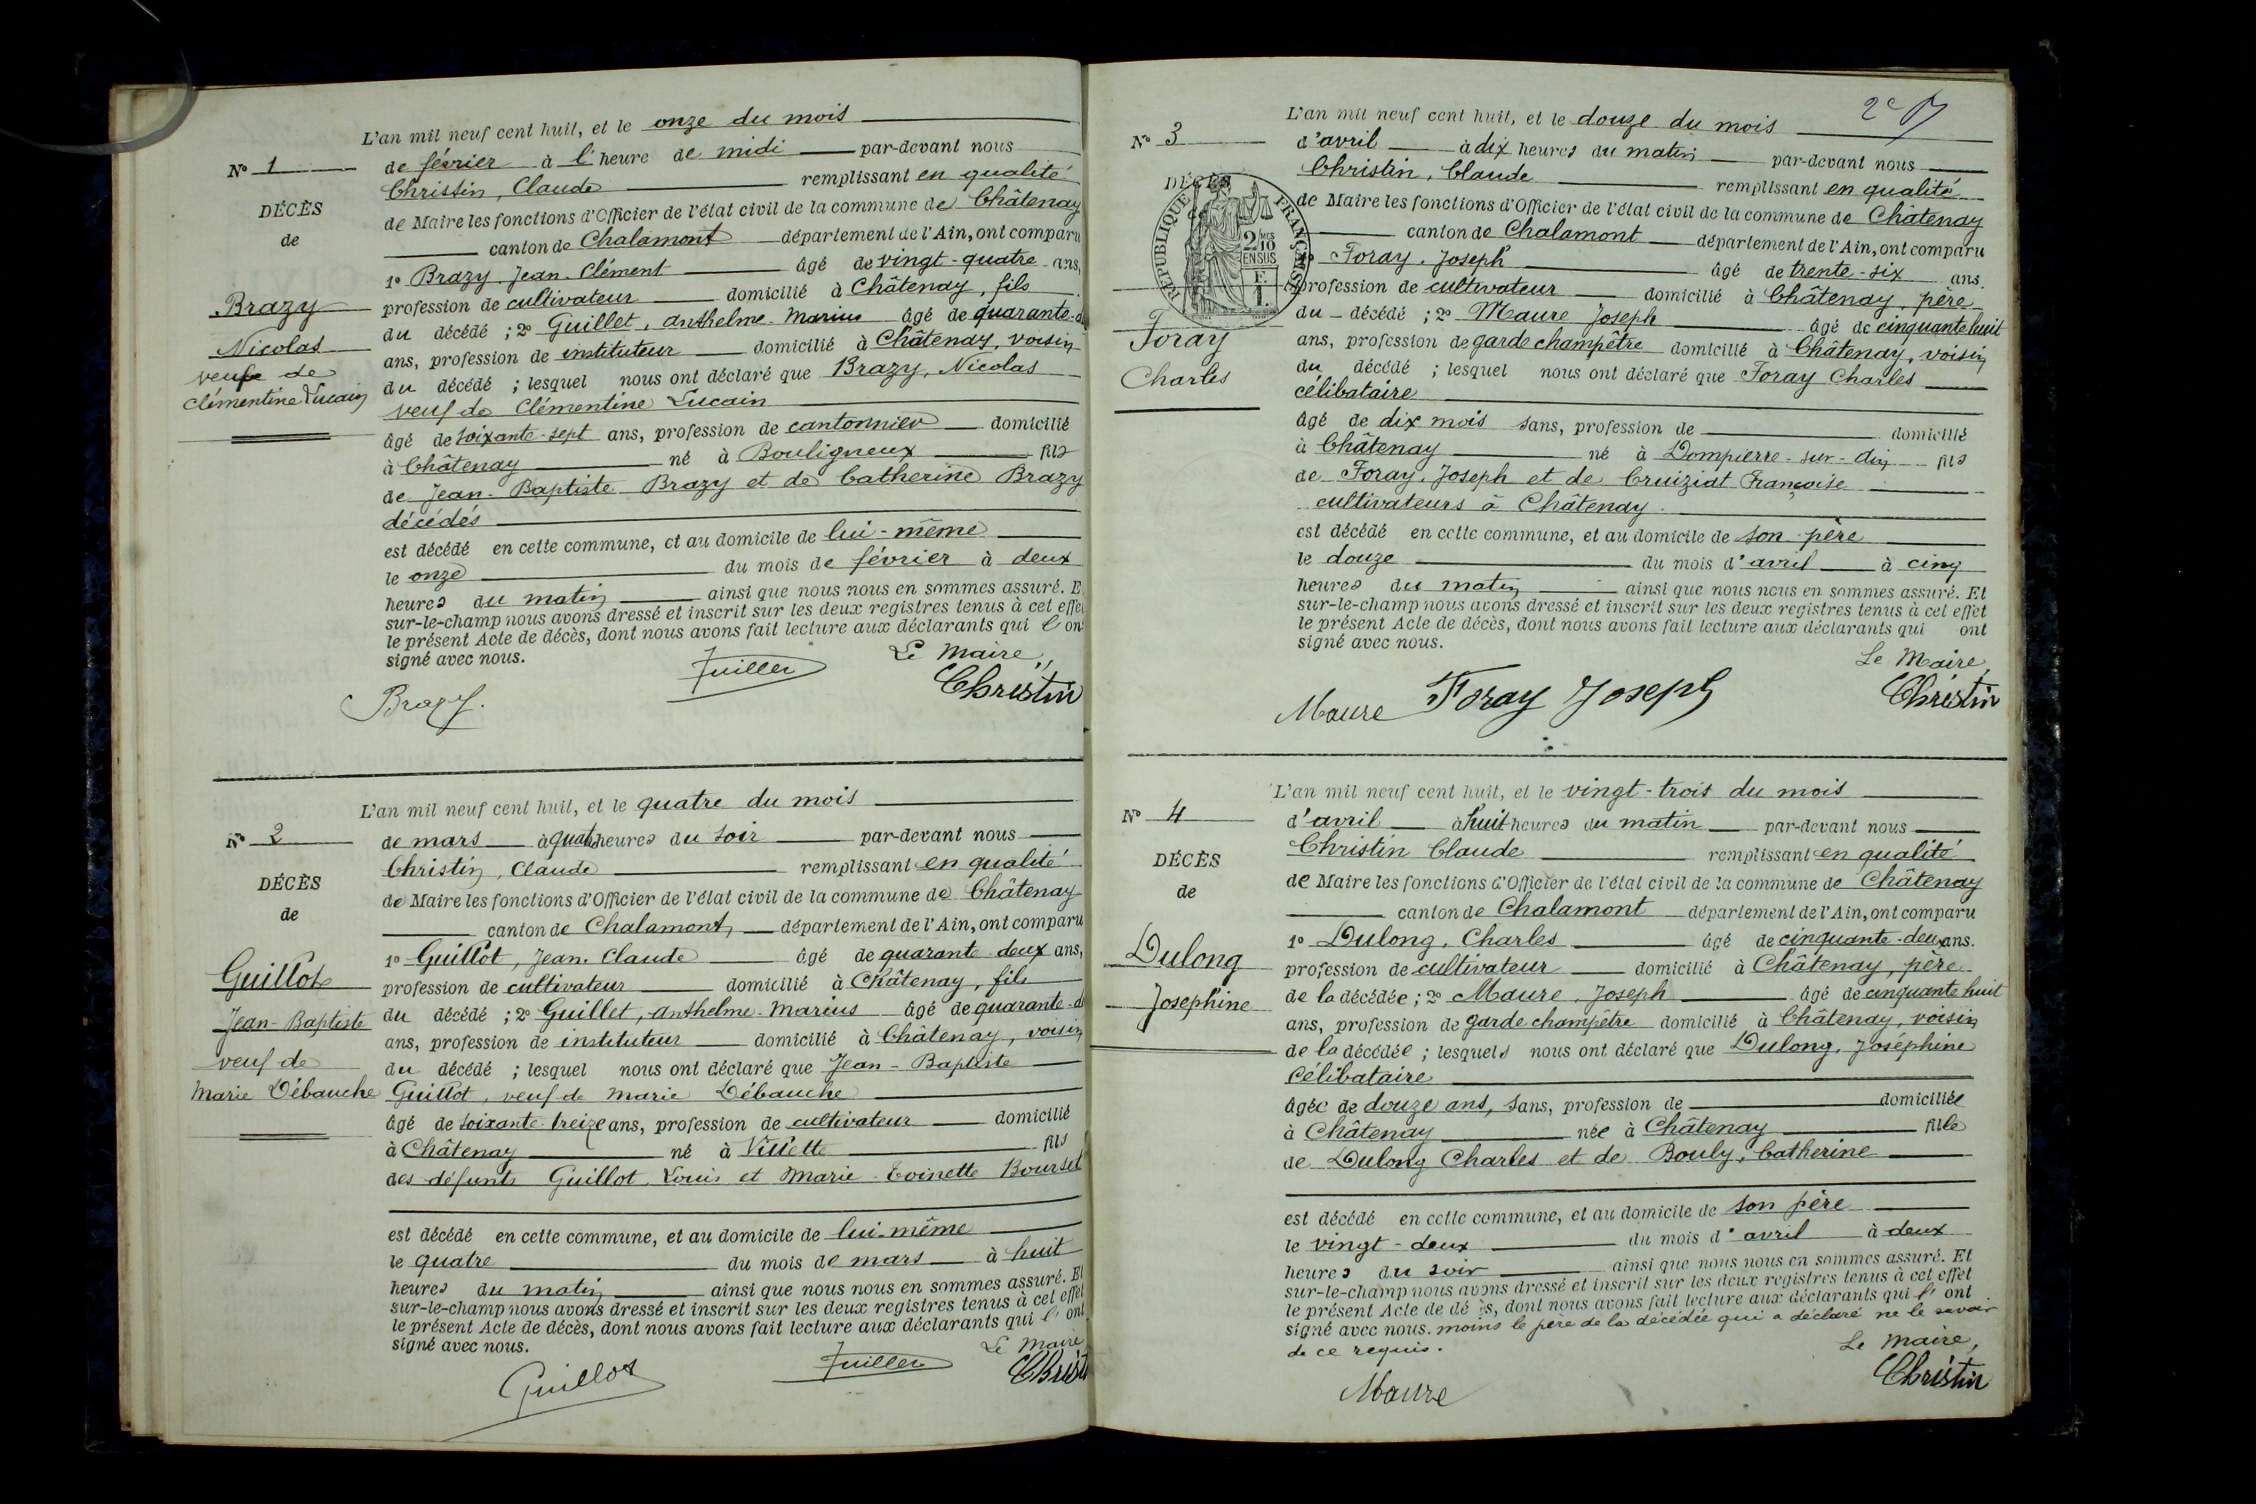 L'an mil neuf cent huit, et le onze du mois
N° 1
de février à l'heure de midi par-devant nous
Christin, Claude remplissant en qualité
DÉCÈS
de Maire les fonctions d'Officier de l'état civil de la commune de Châtenay
de
canton de Chalamont département de l'Ain, ont comparu
1° Brazy, Jean-Clément âgé de vingt-quatre ans,
Brazy
profession de cultivateur domicilié à Châtenay, fils
du décédé ; 2° Guillet, Anthelme-Marius âgé de quarante-d
Nicolas
ans, profession de instituteur domicilié à Châtenay, voisin
veuf de
du décédé ; lesquel nous ont déclaré que Brazy, Nicolas
Clémentine Lucain
veuf de Clémentine Lucain
âgé de soixante-sept ans, profession de cantonnier domicilié
à Châtenay né à Bouligneux fils
de Jean-Baptiste Brazy et de Catherine Brazy
décédés
est décédé en cette commune, et au domicile de lui-même
le onze du mois de février à deux
heures du matin ainsi que nous nous en sommes assuré. E
sur-le-champ nous avons dressé et inscrit sur les deux registres tenus à cet effet
le présent Acte de décès, dont nous avons fait lecture aux déclarants qui l'on
signé avec nous.
Le Maire,
Brazy. Guillet Christin
L'an mil neuf cent huit, et le quatre du mois
N° 2
de mars à quatre heures du soir par-devant nous
Christin, Claude remplissant en qualité
DÉCÈS
de Maire les fonctions d'Officier de l'état civil de la commune de Châtenay
de
canton de Chalamont, département de l'Ain, ont comparu
1° Guillot, Jean-Claude âgé de quarante-deux ans,
Guillot
profession de cultivateur domicilié à Châtenay, fils
Jean-Baptiste
du décédé ; 2° Guillet, Anthelme-Marius âgé de quarante-d
ans, profession de instituteur domicilié à Châtenay, voisin
veuf de
du décédé ; lesquel nous ont déclaré que Jean-Baptiste
Marie Débauche
Guillot, veuf de Marie Débauche
âgé de soixante-treize ans, profession de cultivateur domicilié
à Châtenay né à Villette fils
des défunts Guillot Louis et Marie-Toinette Boursel
est décédé en cette commune, et au domicile de lui-même
le quatre du mois de mars à huit
heures du matin ainsi que nous nous en sommes assuré. Et
sur-le-champ nous avons dressé et inscrit sur les deux registres tenus à cet effet
le présent Acte de décès, dont nous avons fait lecture aux déclarants qui l'ont
signé avec nous.
Le Maire
Guillot Guillet Christ
2e
L'an mil neuf cent huit, et le douze du mois
N° 3
d'avril à dix heures du matin par-devant nous
Christin, Claude remplissant en qualité
DÉCÈS
de Maire les fonctions d'Officier de l'état civil de la commune de Châtenay
RÉPUBLIQUE FRANÇAISE
2/10 MES EN SUS
F. 1.
canton de Chalamont département de l'Ain, ont comparu
Foray, Joseph âgé de trente-six ans.
profession de cultivateur domicilié à Châtenay, père
du décédé ; 2° Maure Joseph âgé de cinquante huit
Foray
ans, profession de garde champêtre domicilié à Châtenay, voisin
Charles
du décédé ; lesquel nous ont déclaré que Foray Charles
célibataire
âgé de dix mois sans, profession de domicilié
à Châtenay né à Dompierre-sur-Ain fils
de Foray, Joseph et de Cruiziat Françoise
cultivateurs à Châtenay.
est décédé en cette commune, et au domicile de son père
le douze du mois d'avril à cinq
heures du matin ainsi que nous nous en sommes assuré. Et
sur-le-champ nous avons dressé et inscrit sur les deux registres tenus à cet effet
le présent Acte de décès, dont nous avons fait lecture aux déclarants qui ont
signé avec nous.
Le Maire,
Maure Foray Joseph Christin
L'an mil neuf cent huit, et le vingt-trois du mois
N° 4
d'avril à huit heures du matin par-devant nous
Christin Claude remplissant en qualité
DÉCÈS
de Maire les fonctions d'Officier de l'état civil de la commune de Châtenay
de
canton de Chalamont département de l'Ain, ont comparu
1° Dulong, Charles âgé de cinquante-deux ans.
Dulong
profession de cultivateur domicilié à Châtenay, père
de la décédée ; 2° Maure, Joseph âgé de cinquante huit
Joséphine
ans, profession de garde champêtre domicilié à Châtenay, voisin
de la décédée ; lesquels nous ont déclaré que Dulong, Joséphine
célibataire
âgée de douze ans, sans, profession de domiciliée
à Châtenay née à Châtenay fille
de Dulong Charles et de Bouly, Catherine
est décédé en cette commune, et au domicile de son père
le vingt-deux du mois d'avril à deux
heures du soir ainsi que nous nous en sommes assuré. Et
sur-le-champ nous avons dressé et inscrit sur les deux registres tenus à cet effet
le présent Acte de dé ès, dont nous avons fait lecture aux déclarants qui l'ont
signé avec nous. moins le père de la décédée qui a déclaré ne le savoir
de ce requis.
Le Maire,
Maure Christin